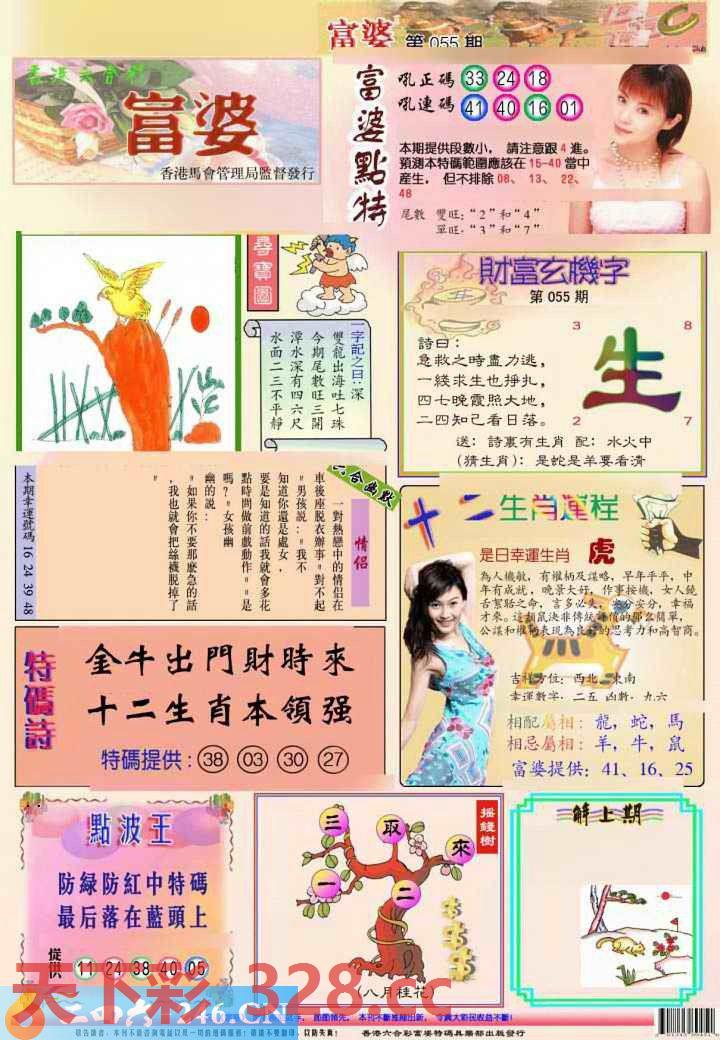 富婆 第 055 期
香港六合彩
富婆
香港馬會管理局監督發行
富婆點特
吼正碼 33 24 18
吼連碼 41 40 16 01
本期提供段數小， 請注意跟 4 進。
預測本特碼範圍應該在 15-40 當中
産生， 但不排除 08、 13、 22、
48
尾數 雙旺：“2”和“4”
單旺：“3”和“7”
尋寶圖
一字記之曰：深
雙龍出海吐七珠
今期尾數旺三開
潭水深有四六尺
水面二三不平靜
財富玄機字
第 055 期
詩曰：
急救之時盡力逃，
一綫求生也掙扎，
四七晚霞照大地，
二四知己看日落。
3 8
生
2 7
送： 詩裏有生肖 配： 水火中
(猜生肖)： 是蛇是羊要看清
六合幽默
情侣
一對熱戀中的情侣在
車後座脱衣辦事"對不起
"男孩説："我不
知道你還是處女，
要是知道的話我就會多花
點時間做前戲動作。"是
嗎？"女孩幽
幽的説：
"如果你不要那麽急的話
，我也就會把絲襪脱掉了
"
本期幸運號碼 16 24 39 48
十二生肖運程
是日幸運生肖 虎
為人機敏， 有權柄及謀略， 早年平平， 中
年有成就， 晚景大好， 作事按機， 女人饒
舌幫賂之命， 言多必失， 安分安分， 幸福
公謀和權柄表現為良好的思考力和高智商。
吉祥方位： 西北、東南
幸運數字： 二五 凶數： 九六
相配屬相： 龍， 蛇， 馬
相忌屬相： 羊， 牛， 鼠
富婆提供： 41、16、25
特碼詩
金牛出門財時來
十二生肖本領强
特碼提供： 38 03 30 27
點波王
防緑防紅中特碼
最后落在藍頭上
提供 11 24 38 40 05
摇錢樹
三 取 來
一 二
(八月桂花)
解上期
天下彩 328.cc
二四六 246.CN
香港六合彩富婆特碼具樂部出版發行